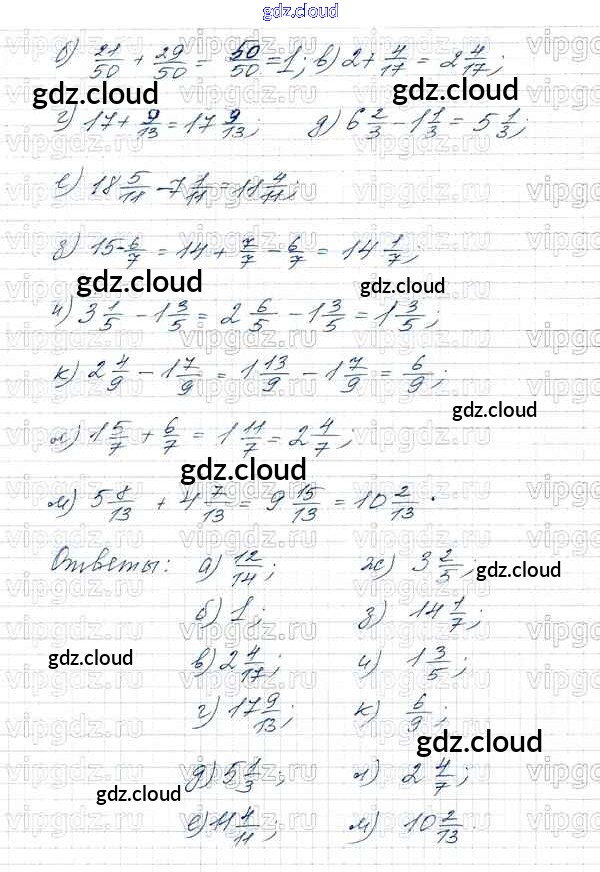 gdz.cloud
б) 21/50 + 29/50 = 50/50 = 1; в) 2 + 4/17 = 2 4/17;
gdz.cloud gdz.cloud
г) 17 + 9/13 = 17 9/13; д) 6 2/3 - 1 1/3 = 5 1/3;
е) 18 5/11 - 7 1/11 = 11 4/11;
з) 15 - 6/7 = 14 + 7/7 - 6/7 = 14 1/7;
gdz.cloud gdz.cloud
и) 3 1/5 - 1 3/5 = 2 6/5 - 1 3/5 = 1 3/5;
к) 2 4/9 - 1 7/9 = 1 13/9 - 1 7/9 = 6/9;
gdz.cloud
л) 1 5/7 + 6/7 = 1 11/7 = 2 4/7;
gdz.cloud
м) 5 8/13 + 4 7/13 = 9 15/13 = 10 2/13.
Ответы: а) 12/14; ж) 3 2/5;
gdz.cloud
б) 1; з) 14 1/7;
gdz.cloud
в) 2 4/17; и) 1 3/5;
г) 17 9/13; к) 6/9;
gdz.cloud
д) 5 1/3; л) 2 4/7;
gdz.cloud
е) 11 4/11; м) 10 2/13.